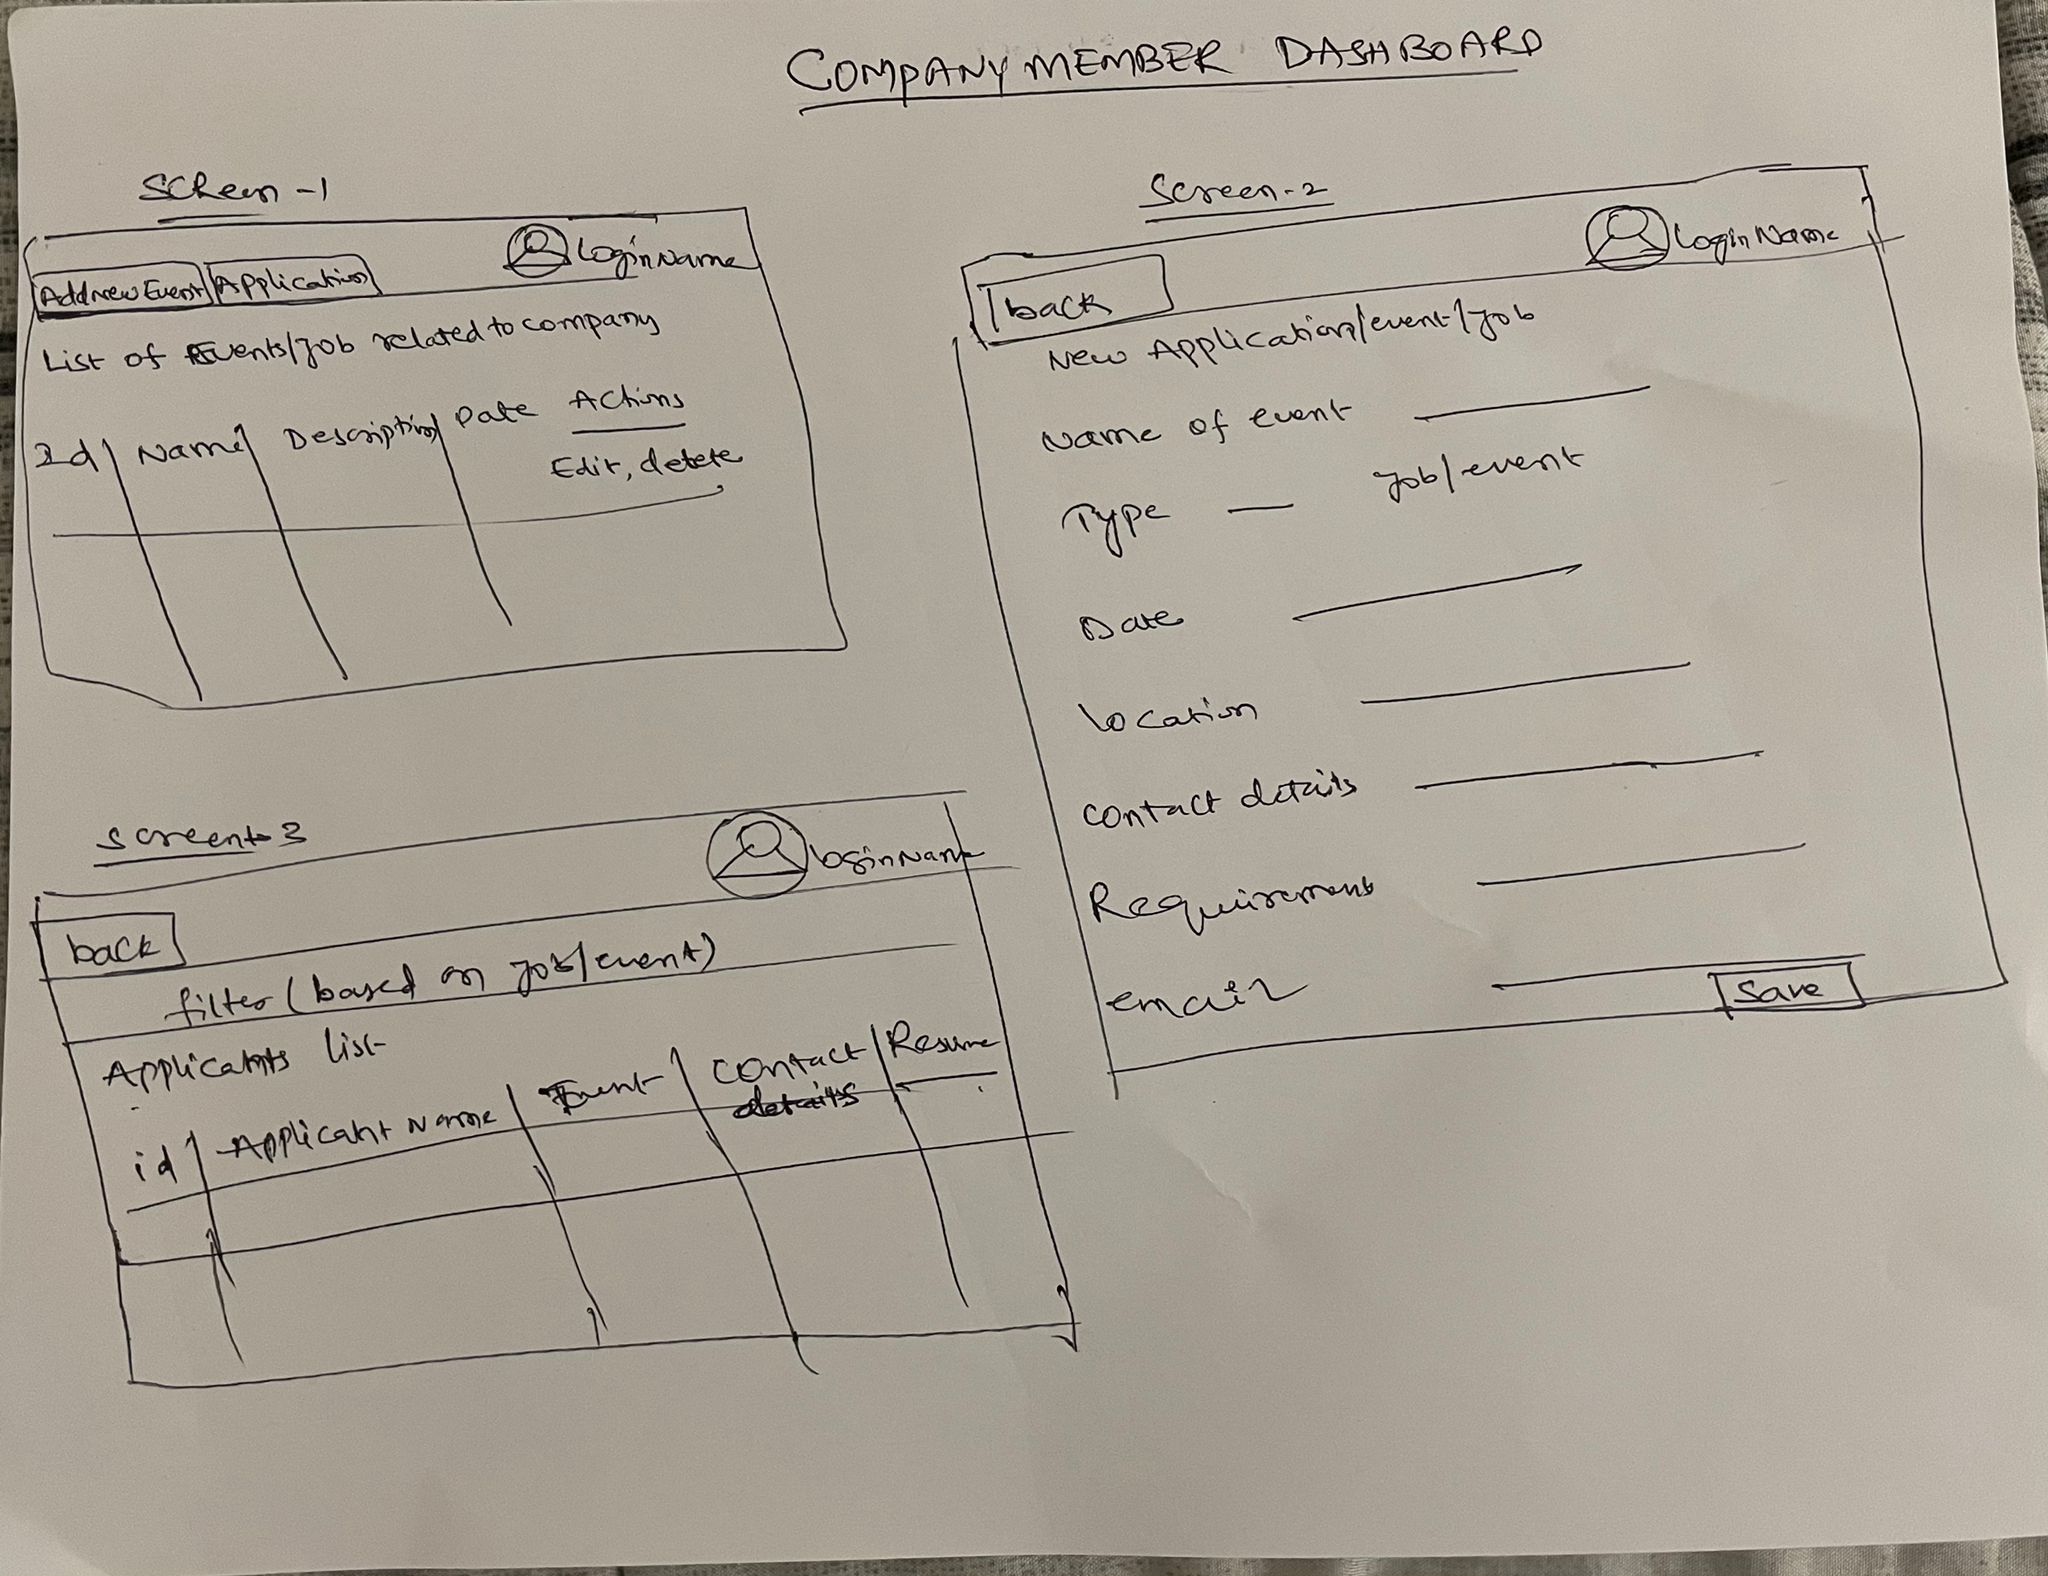 COMPANY MEMBER DASHBOARD
Screen -1
Login Name
Add new Event Application
List of Events/Job related to company
Id Name Description Date Actions
Edit, delete
Screen-2
Login Name
back
New Application/event/Job
Name of event
Type Job/event
Date
Location
Contact details
Requirements
email
Save
Screen-3
Login Name
back
filter (based on job/event)
Applicants list
id Applicant Name Event Contact details Resume